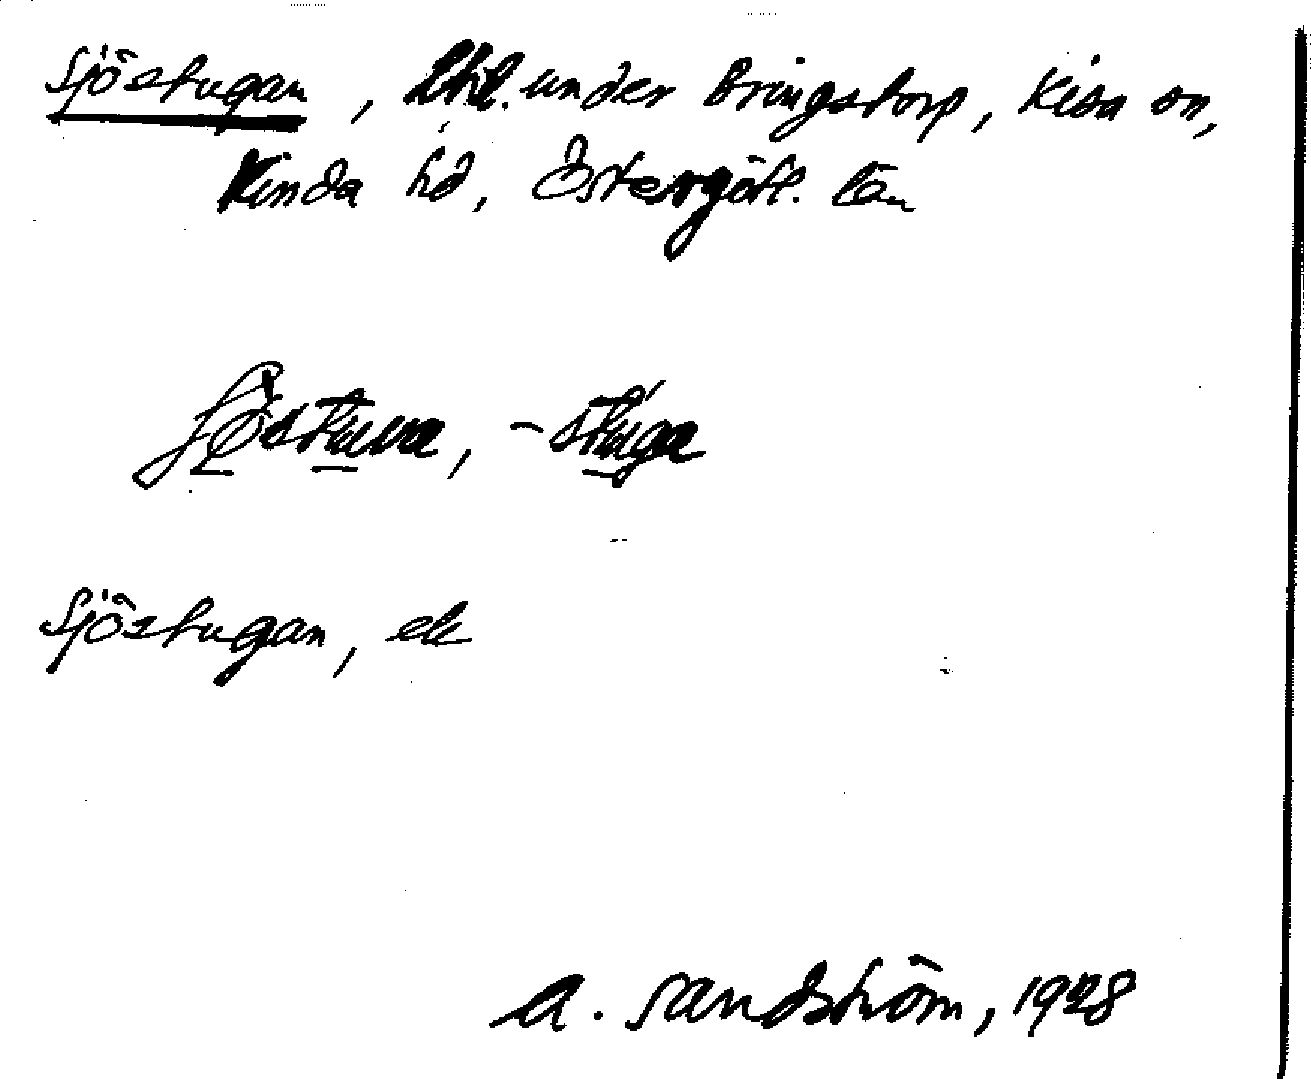 Sjöstugan, lht. under Bringstorp, Kisa sn,
Kinda hd, Östergötl. län
-stuga
Sjöstugan, ek
A. Sandström, 1928